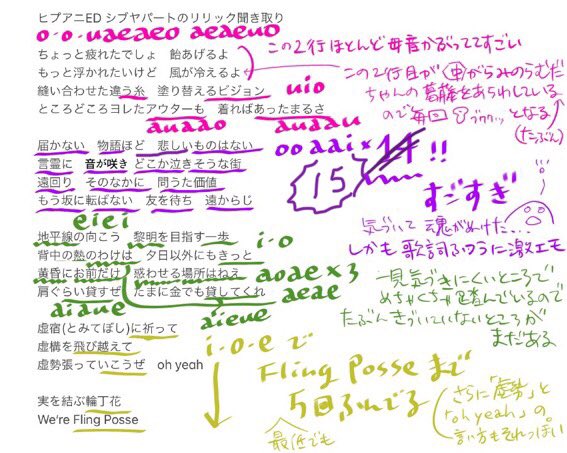 ヒプアニED シブヤパートのリリック聞き取り
o-o-uaeaeo aeaeuo
ちょっと疲れたでしょ 飴あげるよ
もっと浮かれたいけど 風が冷えるよ
この2行ほとんど母音かぶっててすごい
縫い合わせた違う糸 塗り替えるビジョン
uio
ところどころヨレたアウターも 着ればあったまるさ
auaao auaau
この2行目が(中)がらみのらむだ
ちゃんの葛藤をあらわしている
ので毎回
となる
(たぶん)
届かない 物語ほど 悲しいものはない
言霊に 音が咲き どこか泣きそうな街
遠回り そのなかに 問うた価値
もう坂に転ばない 友を待ち 遠からじ
ooaai× !!
15
すごすぎ
気づいて 魂がぬけた…
しかも 歌詞ふつうに激エモ
eiei
地平線の向こう 黎明を目指す一歩
i-o
背中の熱のわけは 夕日以外にもきっと
黄昏にお前だけ 惑わせる場所はねえ
aoae×3
肩ぐらい貸すぜ たまに金でも貸してくれ
aeae
aiaue aieue
一見気づきにくいところで
めちゃくちゃ踏んでいるので
たぶんきづいていないところが
まだある
虚宿(とみてぼし)に祈って
虚構を飛び越えて
虚勢張っていこうぜ oh yeah
i-o-eで
Fling Posse まで
5回ふんでる
最低でも
さらに「虚勢」と
「oh yeah」の
言い方もそれっぽい
実を結ぶ輪丁花
We're Fling Posse